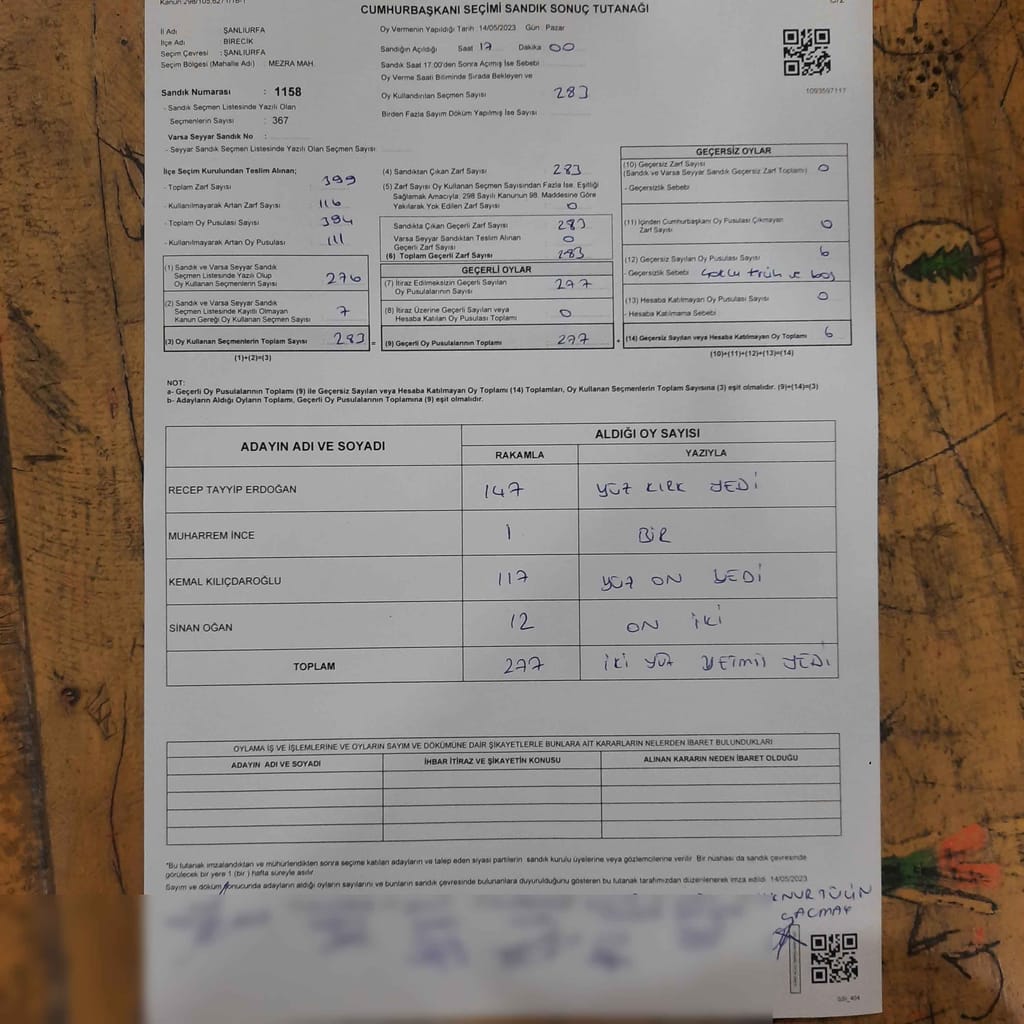 CUMHURBAŞKANI SEÇİMİ SANDIK SONUÇ TUTANAĞI
İl Adı : ŞANLIURFA
İlçe Adı : BİRECİK
Seçim Çevresi : ŞANLIURFA
Seçim Bölgesi (Mahalle Adı) : MEZRA MAH.
Sandık Numarası : 1158
- Sandık Seçmen Listesinde Yazılı Olan
Seçmenlerin Sayısı : 367
Varsa Seyyar Sandık No :
- Seyyar Sandık Seçmen Listesinde Yazılı Olan Seçmen Sayısı
Oy Vermenin Yapıldığı Tarih : 14/05/2023 Gün : Pazar
Sandığın Açıldığı Saat 17 Dakika 00
Sandık Saat 17:00'den Sonra Açımış İse Sebebi
Oy Verme Saati Bitiminde Sırada Bekleyen ve
Oy Kullandırılan Seçmen Sayısı 283
Birden Fazla Sayım Döküm Yapılmış İse Sayısı
1093597117
İlçe Seçim Kurulundan Teslim Alınan;
- Toplam Zarf Sayısı 399
- Kullanılmayarak Artan Zarf Sayısı 116
- Toplam Oy Pusulası Sayısı 394
- Kullanılmayarak Artan Oy Pusulası 111
(1) Sandık ve Varsa Seyyar Sandık
Seçmen Listesinde Yazılı Olup
Oy Kullanan Seçmenlerin Sayısı 276
(2) Sandık ve Varsa Seyyar Sandık
Seçmen Listesinde Kayıtlı Olmayan
Kanun Gereği Oy Kullanan Seçmen Sayısı 7
(3) Oy Kullanan Seçmenlerin Toplam Sayısı 283 =
(1)+(2)=(3)
(4) Sandıktan Çıkan Zarf Sayısı 283
(5) Zarf Sayısı Oy Kullanan Seçmen Sayısından Fazla İse, Eşitliği
Sağlamak Amacıyla; 298 Sayılı Kanunun 98. Maddesine Göre
Yakılarak Yok Edilen Zarf Sayısı 0
Sandıkta Çıkan Geçerli Zarf Sayısı 283
Varsa Seyyar Sandıktan Teslim Alınan
Geçerli Zarf Sayısı 0
(6) Toplam Geçerli Zarf Sayısı 283
GEÇERLİ OYLAR
(7) İtiraz Edilmeksizin Geçerli Sayılan
Oy Pusulalarının Sayısı 277
(8) İtiraz Üzerine Geçerli Sayılan veya
Hesaba Katılan Oy Pusulası Toplamı 0
(9) Geçerli Oy Pusulalarının Toplamı 277 +
GEÇERSİZ OYLAR
(10) Geçersiz Zarf Sayısı
(Sandık ve Varsa Seyyar Sandık Geçersiz Zarf Toplamı) 0
- Geçersizlik Sebebi
(11) İçinden Cumhurbaşkanı Oy Pusulası Çıkmayan
Zarf Sayısı 0
(12) Geçersiz Sayılan Oy Pusulası Sayısı 6
- Geçersizlik Sebebi ve boş
(13) Hesaba Katılmayan Oy Pusulası Sayısı 0
- Hesaba Katılmama Sebebi
(14) Geçersiz Sayılan veya Hesaba Katılmayan Oy Toplamı 6
(10)+(11)+(12)+(13)=(14)
NOT:
a- Geçerli Oy Pusulalarının Toplamı (9) ile Geçersiz Sayılan veya Hesaba Katılmayan Oy Toplamı (14) Toplamları, Oy Kullanan Seçmenlerin Toplam Sayısına (3) eşit olmalıdır. (9)+(14)=(3)
b- Adayların Aldığı Oyların Toplamı, Geçerli Oy Pusulalarının Toplamına (9) eşit olmalıdır.
ADAYIN ADI VE SOYADI ALDIĞI OY SAYISI
RAKAMLA YAZIYLA
RECEP TAYYİP ERDOĞAN 147 YÜZ KIRK YEDİ
MUHARREM İNCE 1 BİR
KEMAL KILIÇDAROĞLU 117 YÜZ ON YEDİ
SİNAN OĞAN 12 ON İKİ
TOPLAM 277 İKİ YÜZ YETMİŞ YEDİ
OYLAMA İŞ VE İŞLEMLERİNE VE OYLARIN SAYIM VE DÖKÜMÜNE DAİR ŞİKAYETLERLE BUNLARA AİT KARARLARIN NELERDEN İBARET BULUNDUKLARI
ADAYIN ADI VE SOYADI İHBAR İTİRAZ VE ŞİKAYETİN KONUSU ALINAN KARARIN NEDEN İBARET OLDUĞU
*Bu tutanak imzalandıktan ve mühürlendikten sonra seçime katılan adayların ve talep eden siyasi partilerin sandık kurulu üyelerine veya gözlemcilerine verilir. Bir nüshası da sandık çevresinde
görülecek bir yere 1 (bir) hafta süreyle asılır.
Sayım ve döküm sonucunda adayların aldığı oyların sayılarını ve bunların sandık çevresinde bulunanlara duyurulduğunu gösteren bu tutanak tarafımızdan düzenlenerek imza edildi. 14/05/2023